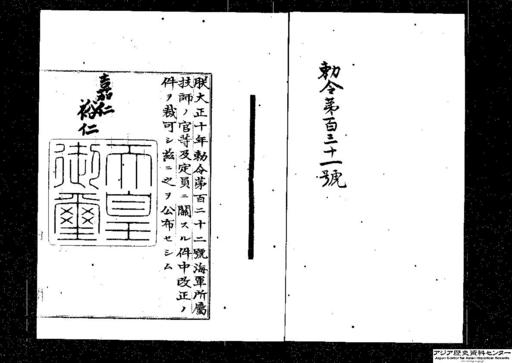 勅令第百三十一號
朕大正十年勅令第百二十二號海軍所屬
技師ノ官等及定員ニ關スル件中改正ノ
件ヲ裁可シ茲ニ之ヲ公布セシム
嘉仁
裕仁
天皇
御璽
アジア歴史資料センター
Japan Center for Asian Historical Records